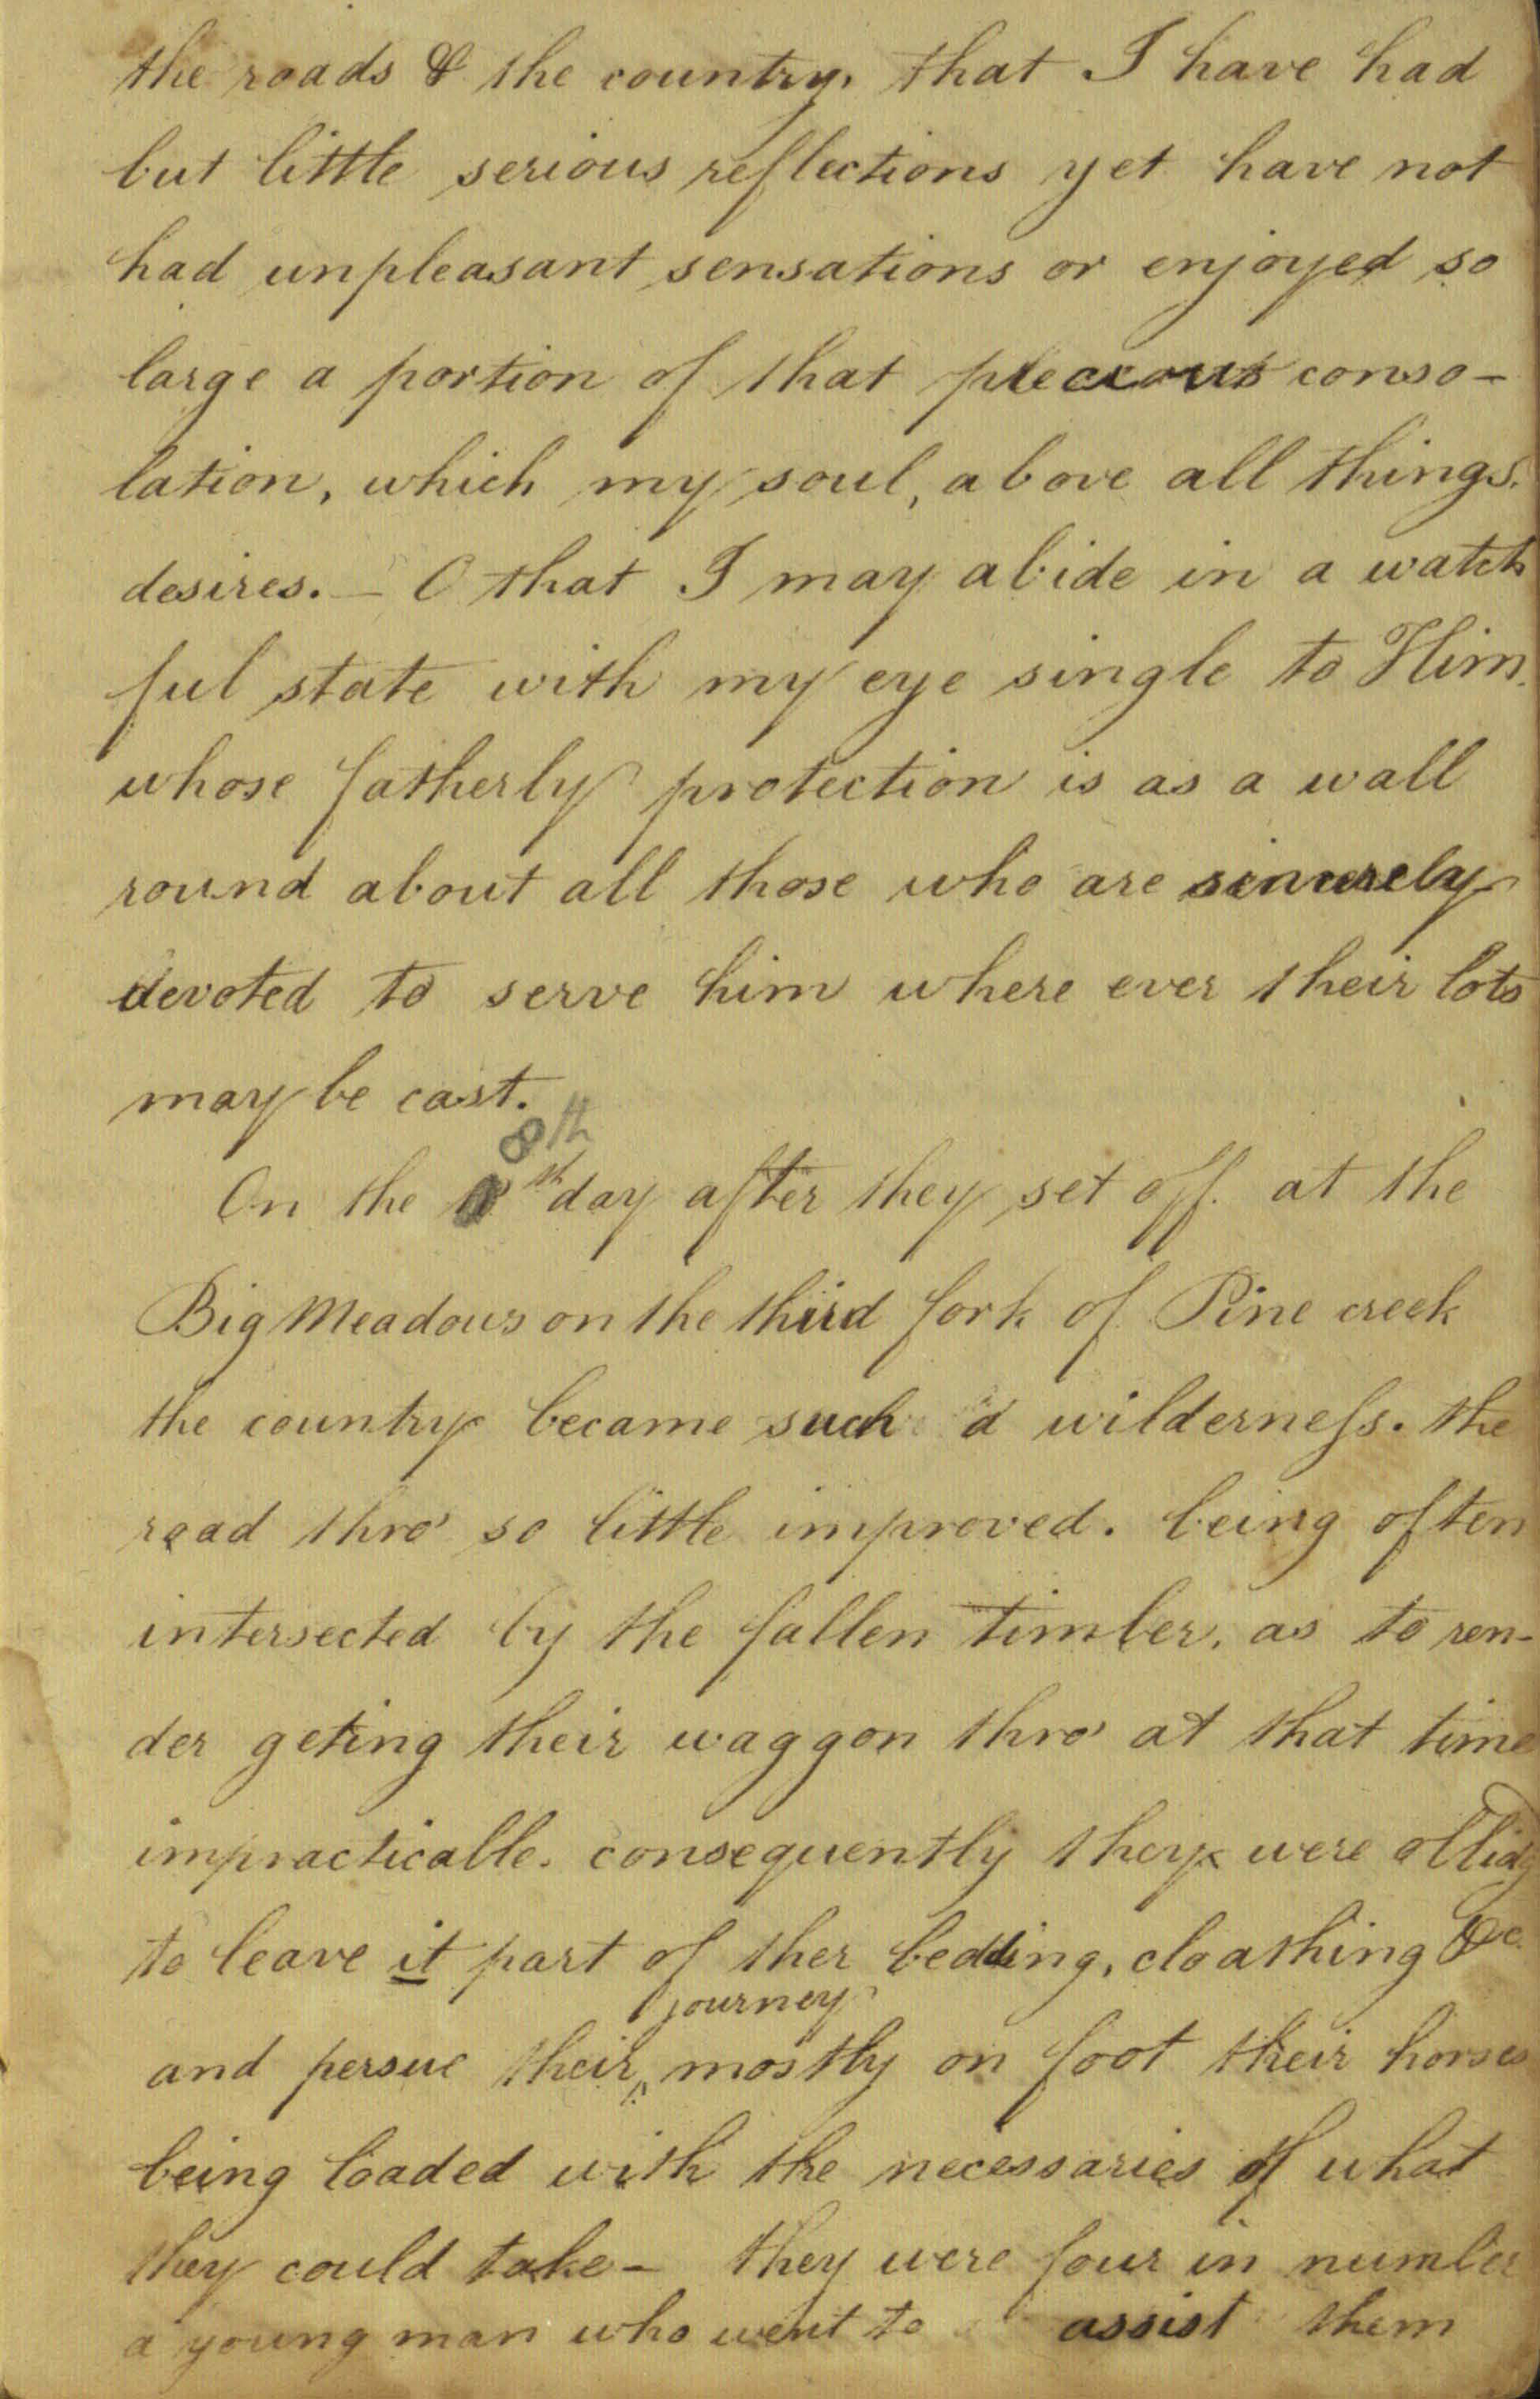 the roads & the country, that I have had
but little serious reflections yet have not
had unpleasant sensations or enjoyed so
large a portion of that precious conso-
lation, which my soul, above all things.
desires. – O that I may abide in a watch
ful state with my eye single to Him.
whose fatherly protection is as a wall
round about all those who are sincerely
devoted to serve him where ever their lots
may be cast.
8th
On the th day after they set off. at the
Big Meadows on the third fork of Pine creek
the country became such a wilderneſs. the
road thro' so little improved. being often
intersected by the fallen timber, as to ren-
der geting their waggon thro' at that time
impracticable. consequently they were oblidg
to leave it part of ther bedding, cloathing &c.
journey
and persue their mostly on foot their horses
being loaded with the necessaries of what
they could take – they were four in number
a young man who went to assist them